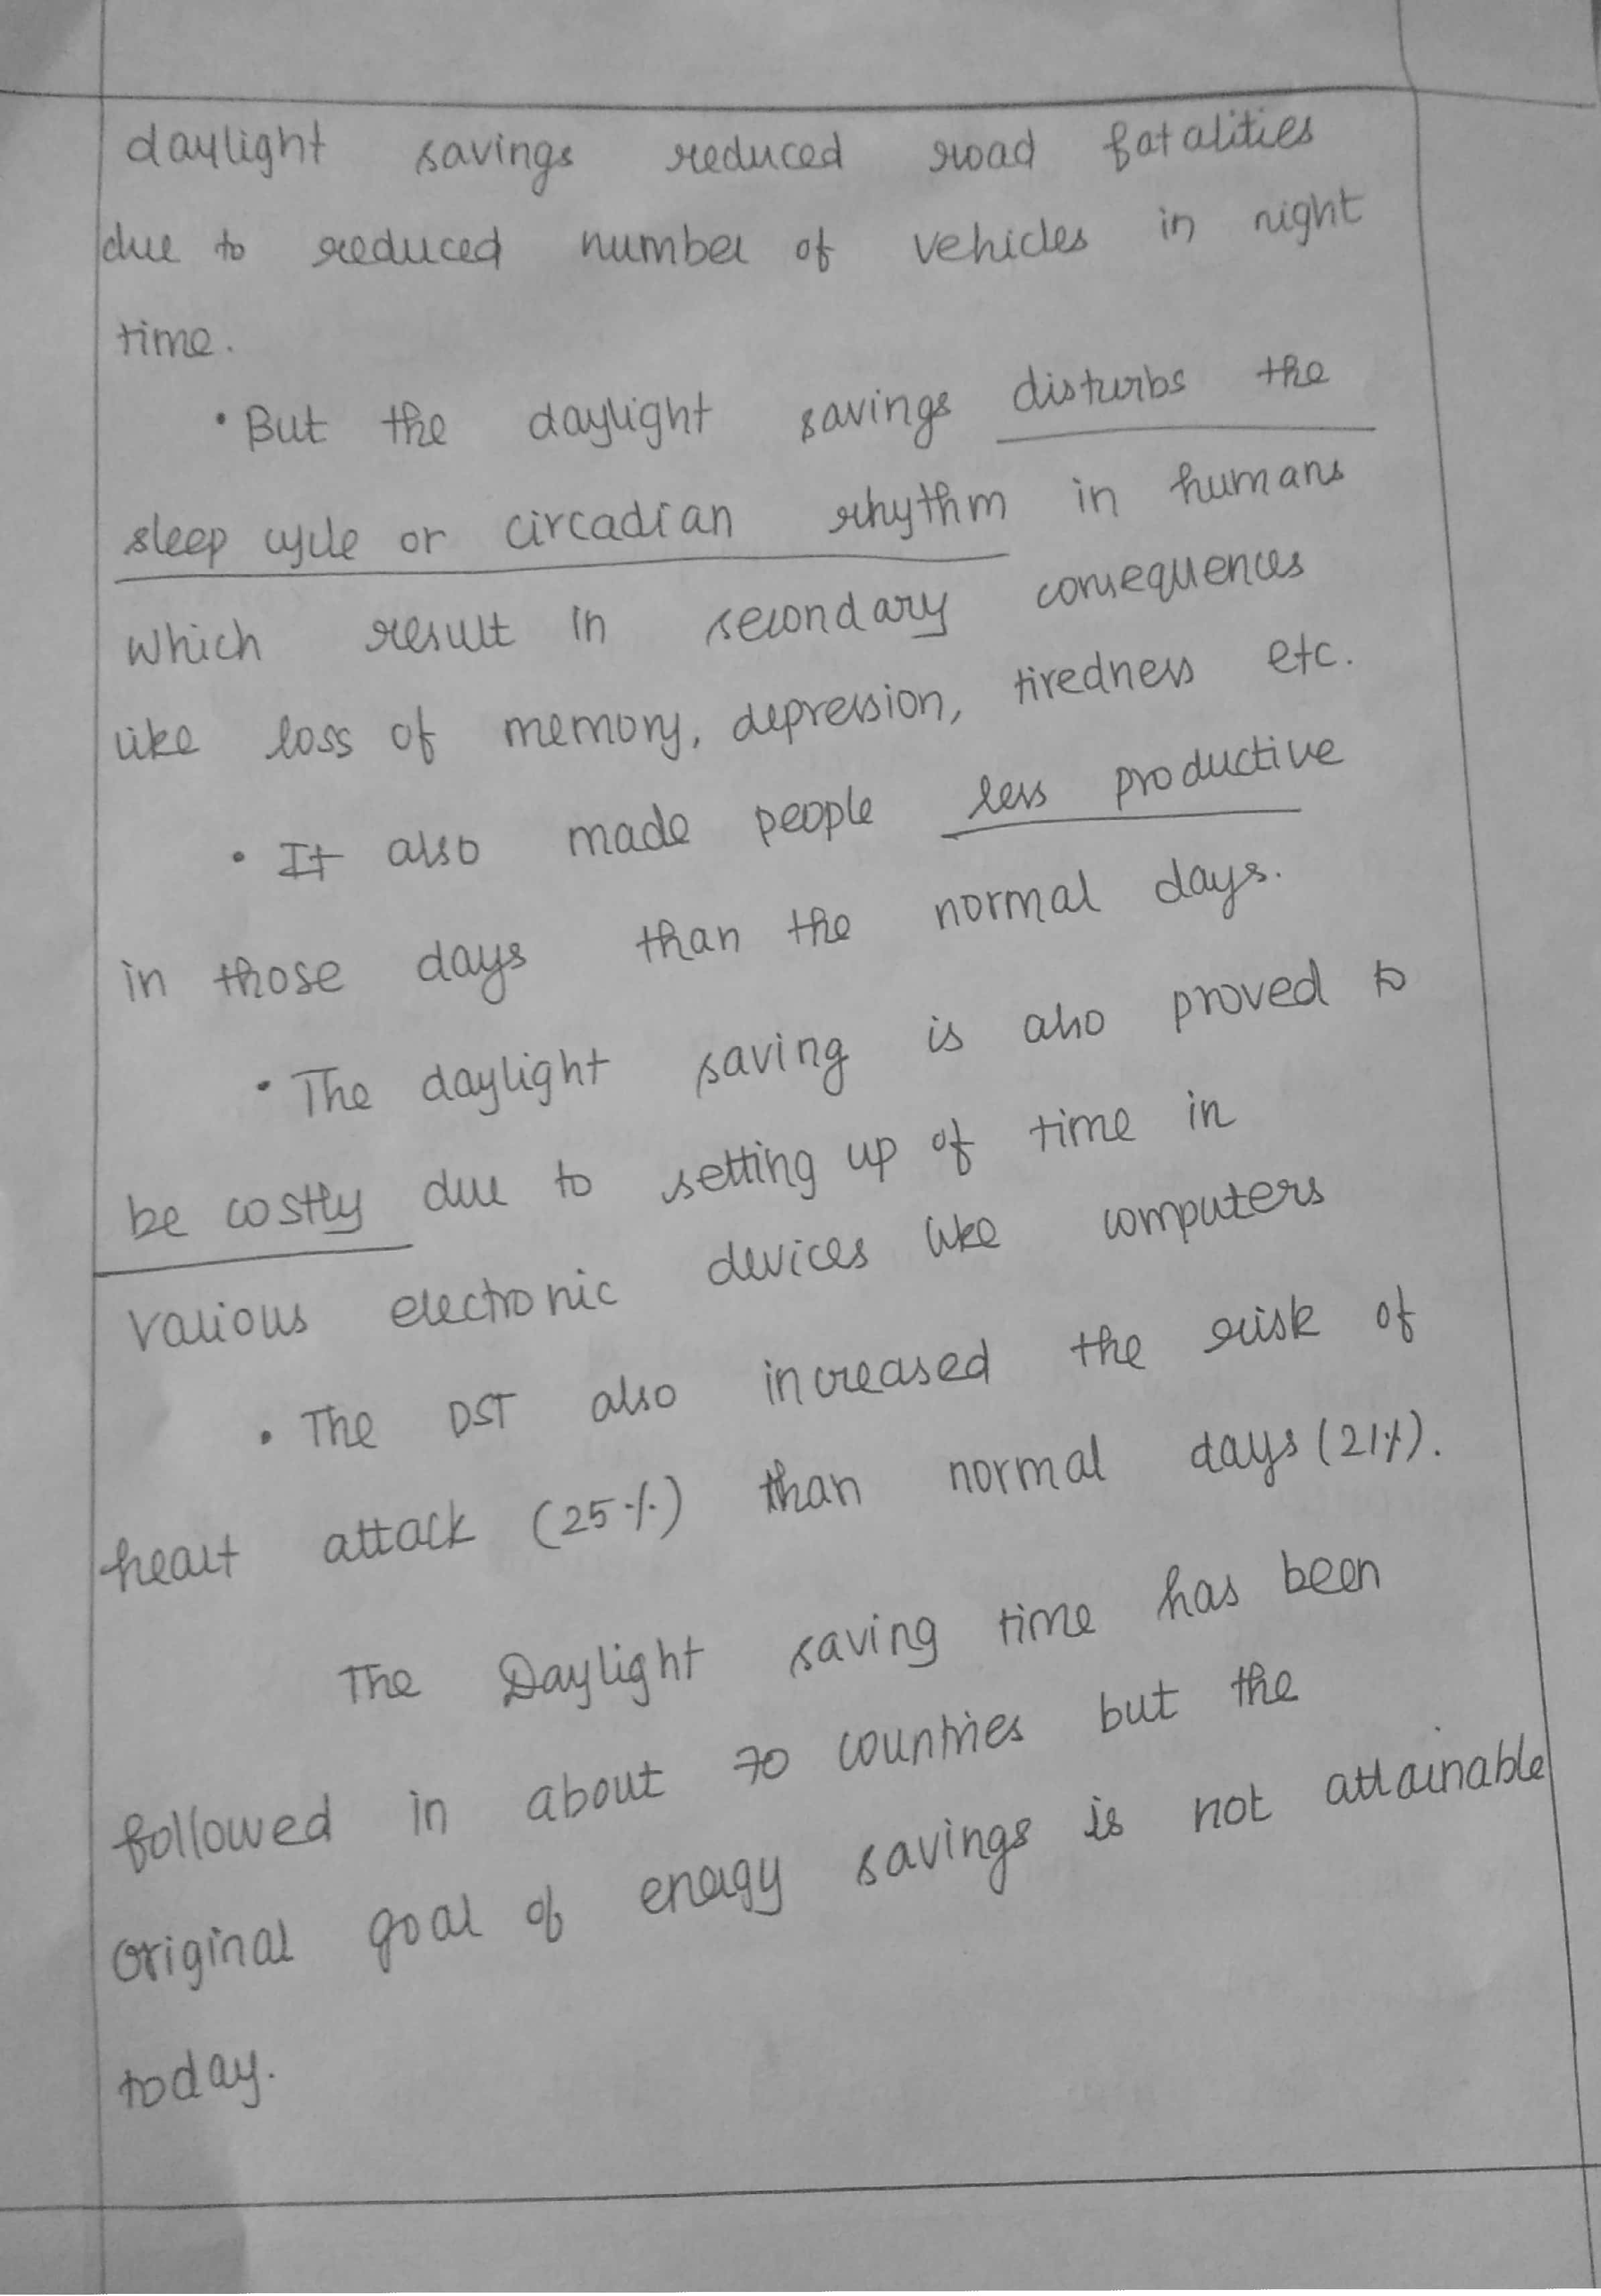 daylight savings reduced road fatalities
due to reduced number of vehicles in night
time.
• But the daylight savings disturbs the
sleep cycle or circadian rhythm in humans
which result in secondary consequences
like loss of memory, depression, tiredness etc.
• It also made people less productive
in those days than the normal days.
• The daylight saving is also proved to
be costly due to setting up of time in
various electronic devices like computers
• The DST also increased the risk of
heart attack (25%) than normal days (21%).
The Daylight saving time has been
followed in about 70 countries but the
original goal of energy savings is not attainable
today.